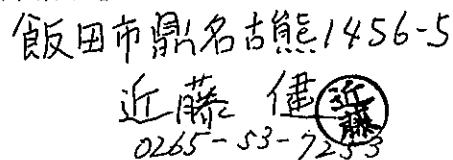 飯田市鼎名古熊1456-5
近藤 健 近藤
0265-53-7253